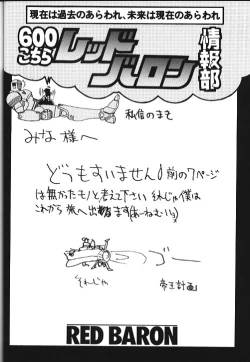 現在は過去のあらわれ、未来は現在のあらわれ
600
こちら
レッドバロン
情報部
私信のまま
みな様へ
どうもすいません♪前の7ページ
は無かったモノと考えて下さい それじゃ僕は
これから 旅へ出ます
それじゃ
ゴー
帝王計画
RED BARON